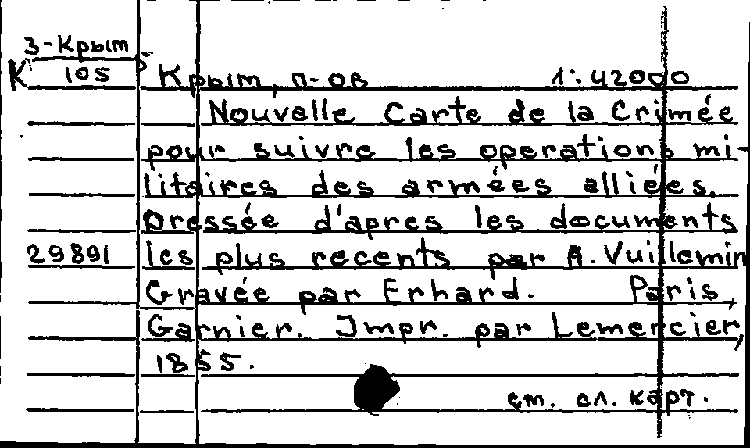 3-Крым
К 105
Крым, п-ов 1:42000
Nouvelle Carte de la Crimée
pour suivre les operations mi-
litaires des armées alliées.
Dressée d'apres les documents
29891 les plus recents par A. Vuillemin
Gravée par Erhard. Paris,
Garnier. Impr. par Lemercier,
1855.
см. сл. карт.